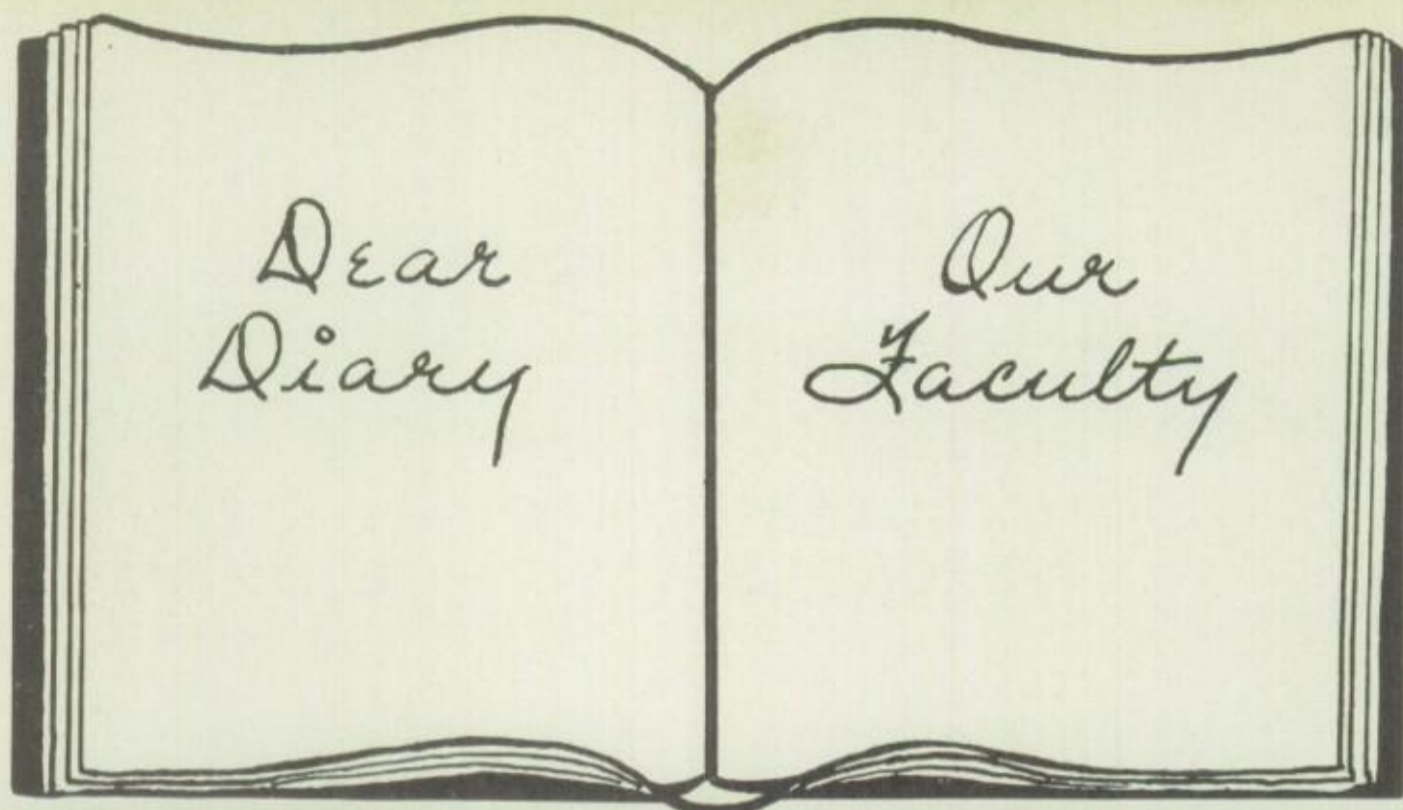 Dear
Diary
Our
Faculty